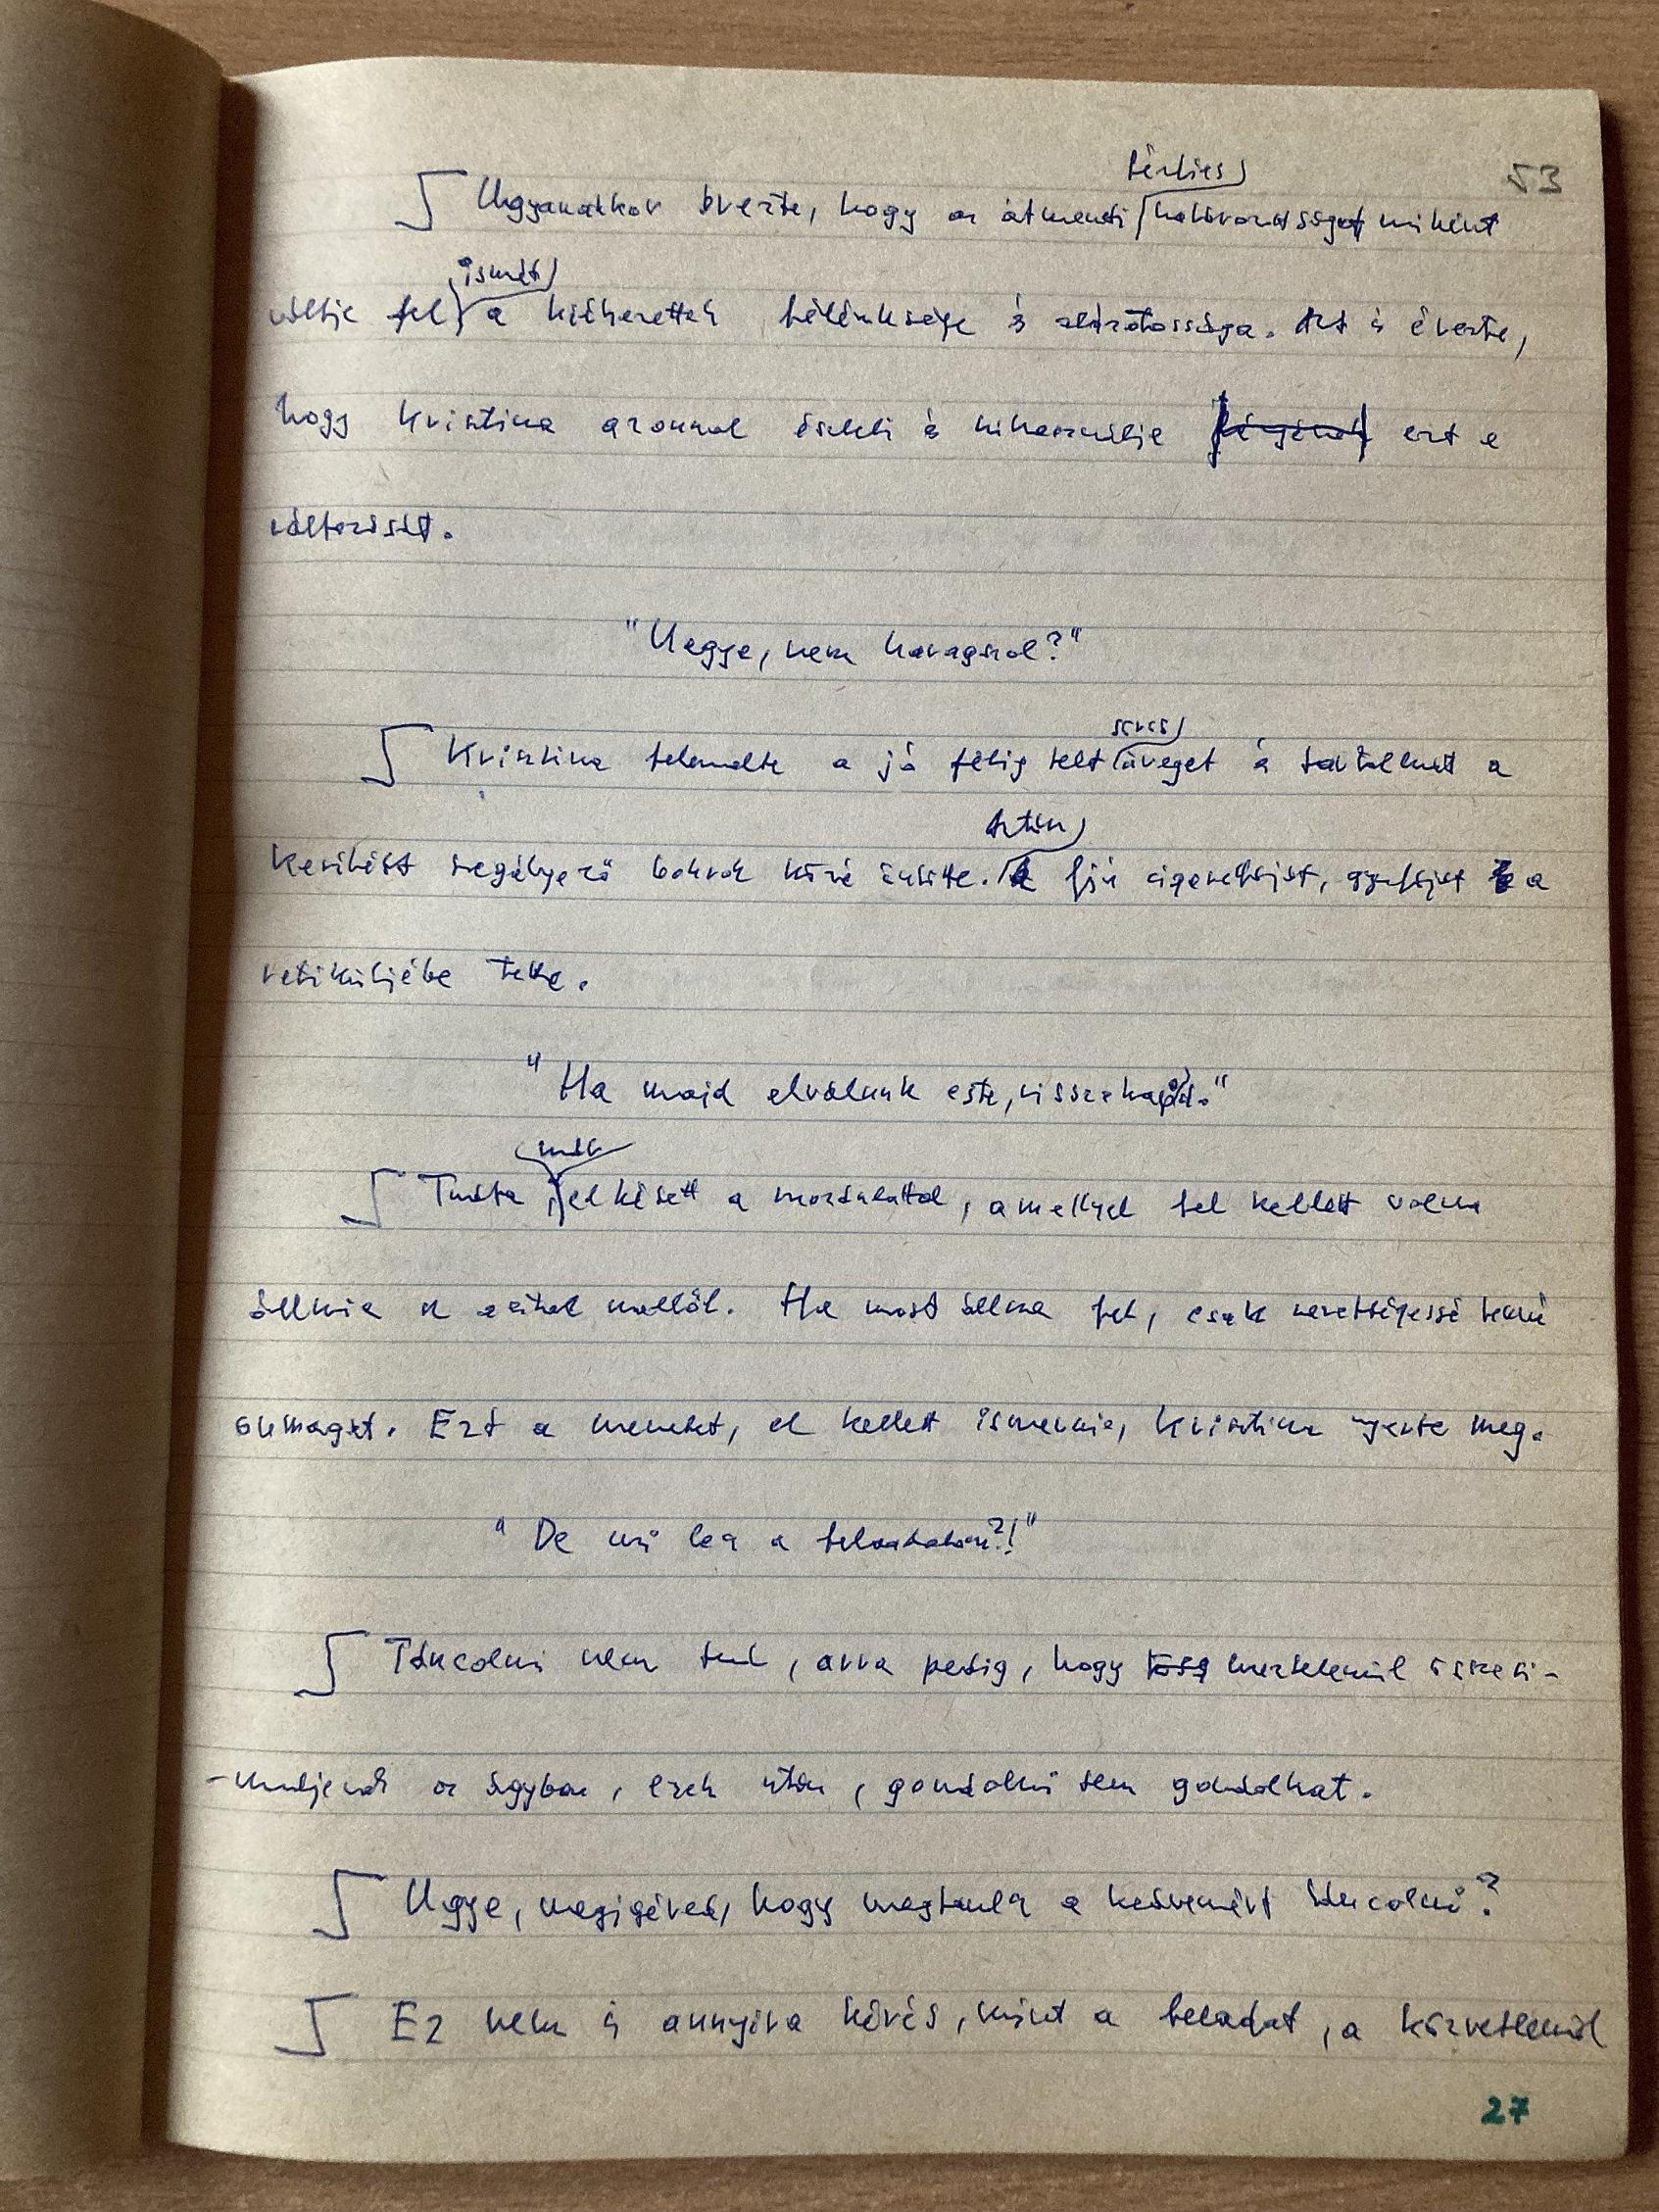 53
Ugyanakkor érezte, hogy az átmeneti férfias határozottságot miként
váltja fel ismét a kiéhezettek félénksége és alázatossága. Azt is érezte,
hogy Krisztina azonnal észleli és kihasználja ezt a
változást.
"Ugye, nem haragszol?"
Krisztina felemelte a jó félig telt sörös üveget és tartalmát a
kerítést szegélyező bokrok közé öntötte. Aztán fia cigarettáját, gyufáját a
retiküljébe tette.
"Ha majd elválunk este, visszakapod."
Tudta már, elkésett a mozdulattal, amellyel fel kellett volna
állnia az asztal mellől. Ha most állna fel, csak nevetségessé tenné
önmagát. Ezt a menetet, el kellett ismernie, Krisztina nyerte meg.
"De mi lesz a feladatom?!"
Táncolni nem tud, arra pedig, hogy meztelenül összesi-
-muljanak az ágyban, ezek után, gondolni sem gondolhat.
Ugye, megígéred, hogy megtanulsz a kedvemért táncolni?
Ez nem is annyira kérés, mint a feladat, a közvetlenül
27